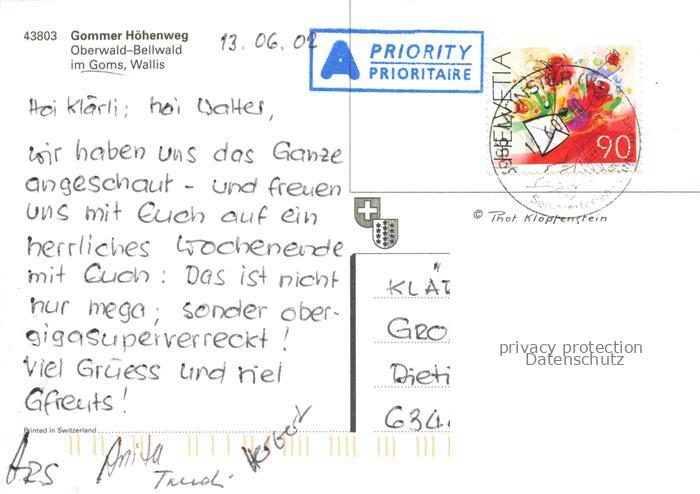 43803 Gommer Höhenweg
Oberwald–Bellwald
im Goms, Wallis
13.06.02
A PRIORITY
PRIORITAIRE
HELVETIA
90
3985 MÜNSTER (VS)
Hoi Klärli; hoi Walter,
wir haben uns das Ganze
angeschaut - und freuen
uns mit Euch auf ein
herrliches Wochenende
mit Euch: Das ist nicht
nur mega; sonder ober-
gigasuperverreckt!
Viel Grüess und viel
Gfreuts!
© Phot Klopfenstein
KLÄ
GRO
Dieti
634
privacy protection
Datenschutz
Printed in Switzerland
ARS Anita Trudi Herbert